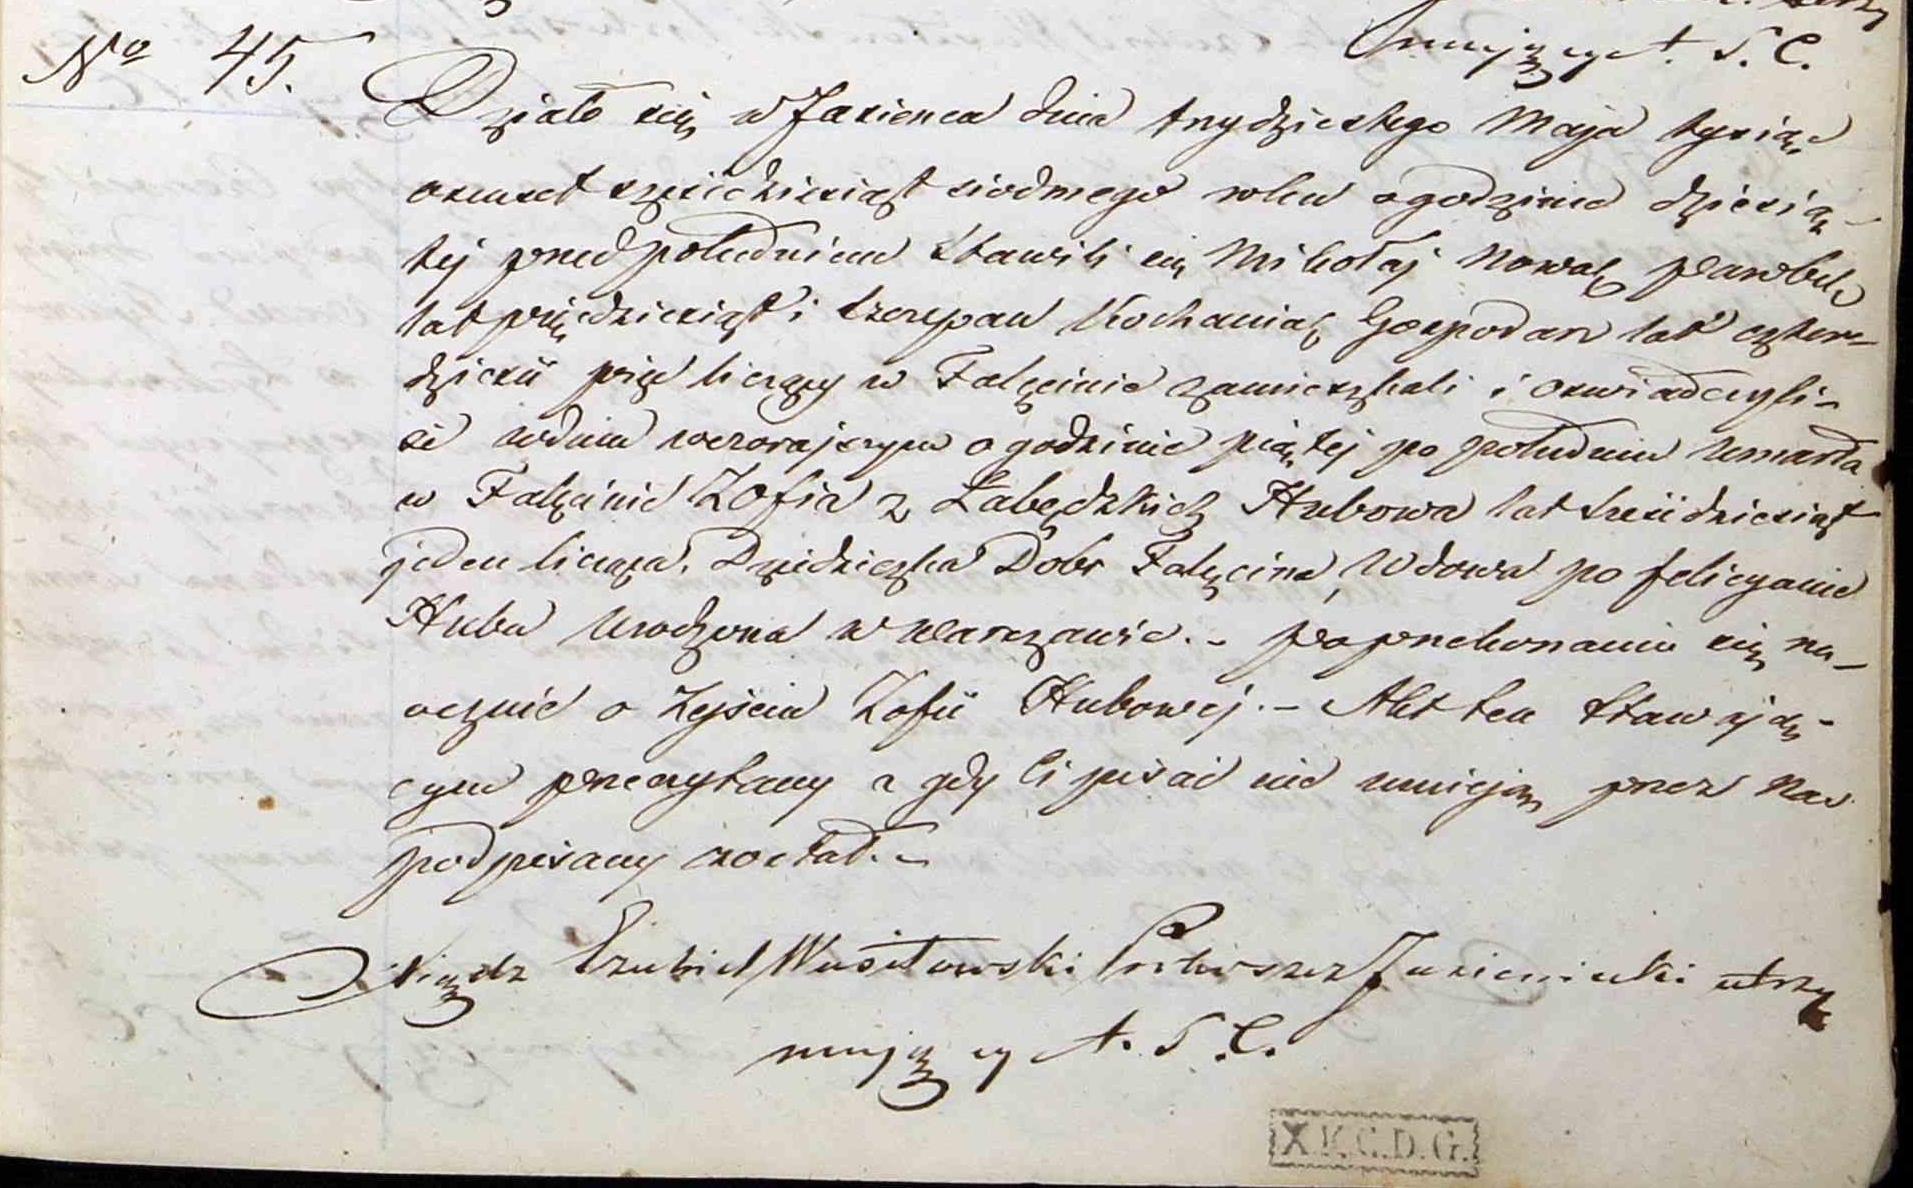 mujący A. S. C.
No 45.
Działo się w Jasieńcu dnia trzydziestego Maja tysiąc
osmset sześćdziesiąt siodmego roku o godzinie dziesią-
tej przed południem Stawili się Mikołaj Nowak parobek
lat pięćdziesiąt i Szczepan Kochaniak Gospodarz lat czter-
dzieści pięć liczący w Falęcinie zamieszkali i oswiadczyli
że w dniu wczorajszym o godzinie piątej po południu umarła
w Falęcinie Zofia z Łabędzkich Hubowa lat sześćdziesiąt
jeden licząca, Dziedziczka Dobr Falęcina, Wdowa po Felicyanie
Hubu urodzona w Warszawie. – po przekonaniu się na-
ocznie o zejściu Zofii Hubowej. – Akt ten stawają-
cym przeczytany a gdy Ci pisać nie umieją przez Nas
podpisany został. –
Xiądz Ezubiel Wasiłowski Proboszcz Jasieniecki utrzy
mujący A. S. C.
X.K.C.D.G.